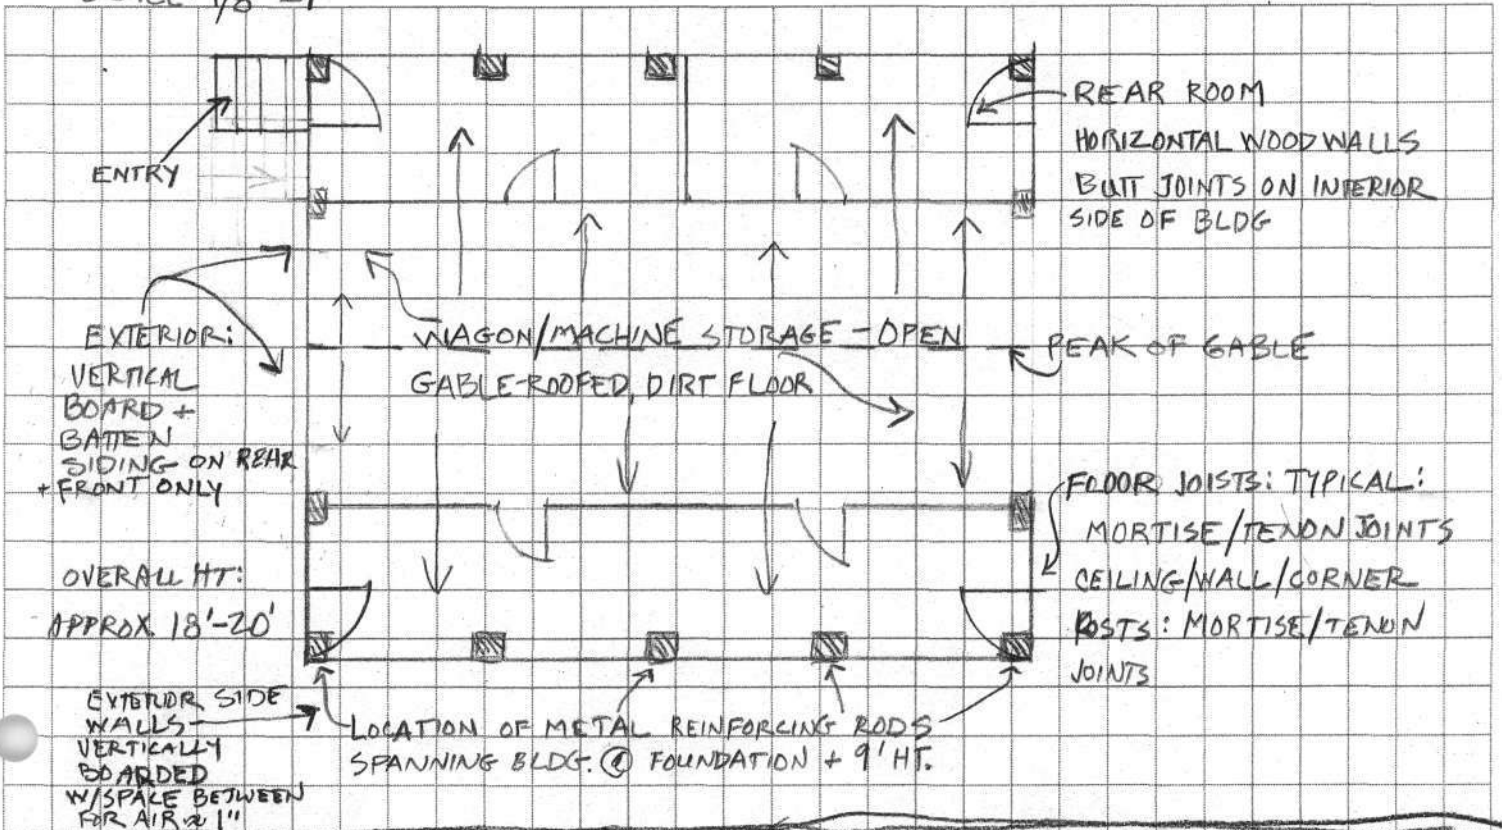 SCALE 1/8" = 1'
ENTRY
REAR ROOM
HORIZONTAL WOOD WALLS
BUTT JOINTS ON INTERIOR
SIDE OF BLDG
EXTERIOR:
VERTICAL
BOARD +
BATTEN
SIDING ON REAR
+ FRONT ONLY
WAGON/MACHINE STORAGE - OPEN
GABLE-ROOFED, DIRT FLOOR
PEAK OF GABLE
FLOOR JOISTS: TYPICAL:
MORTISE/TENON JOINTS
CEILING/WALL/CORNER
POSTS: MORTISE/TENON
JOINTS
OVERALL HT:
APPROX. 18'-20'
EXTERIOR SIDE
WALLS
VERTICALLY
BOARDED
W/SPACE BETWEEN
FOR AIR ≈ 1"
LOCATION OF METAL REINFORCING RODS
SPANNING BLDG. @ FOUNDATION + 9' HT.